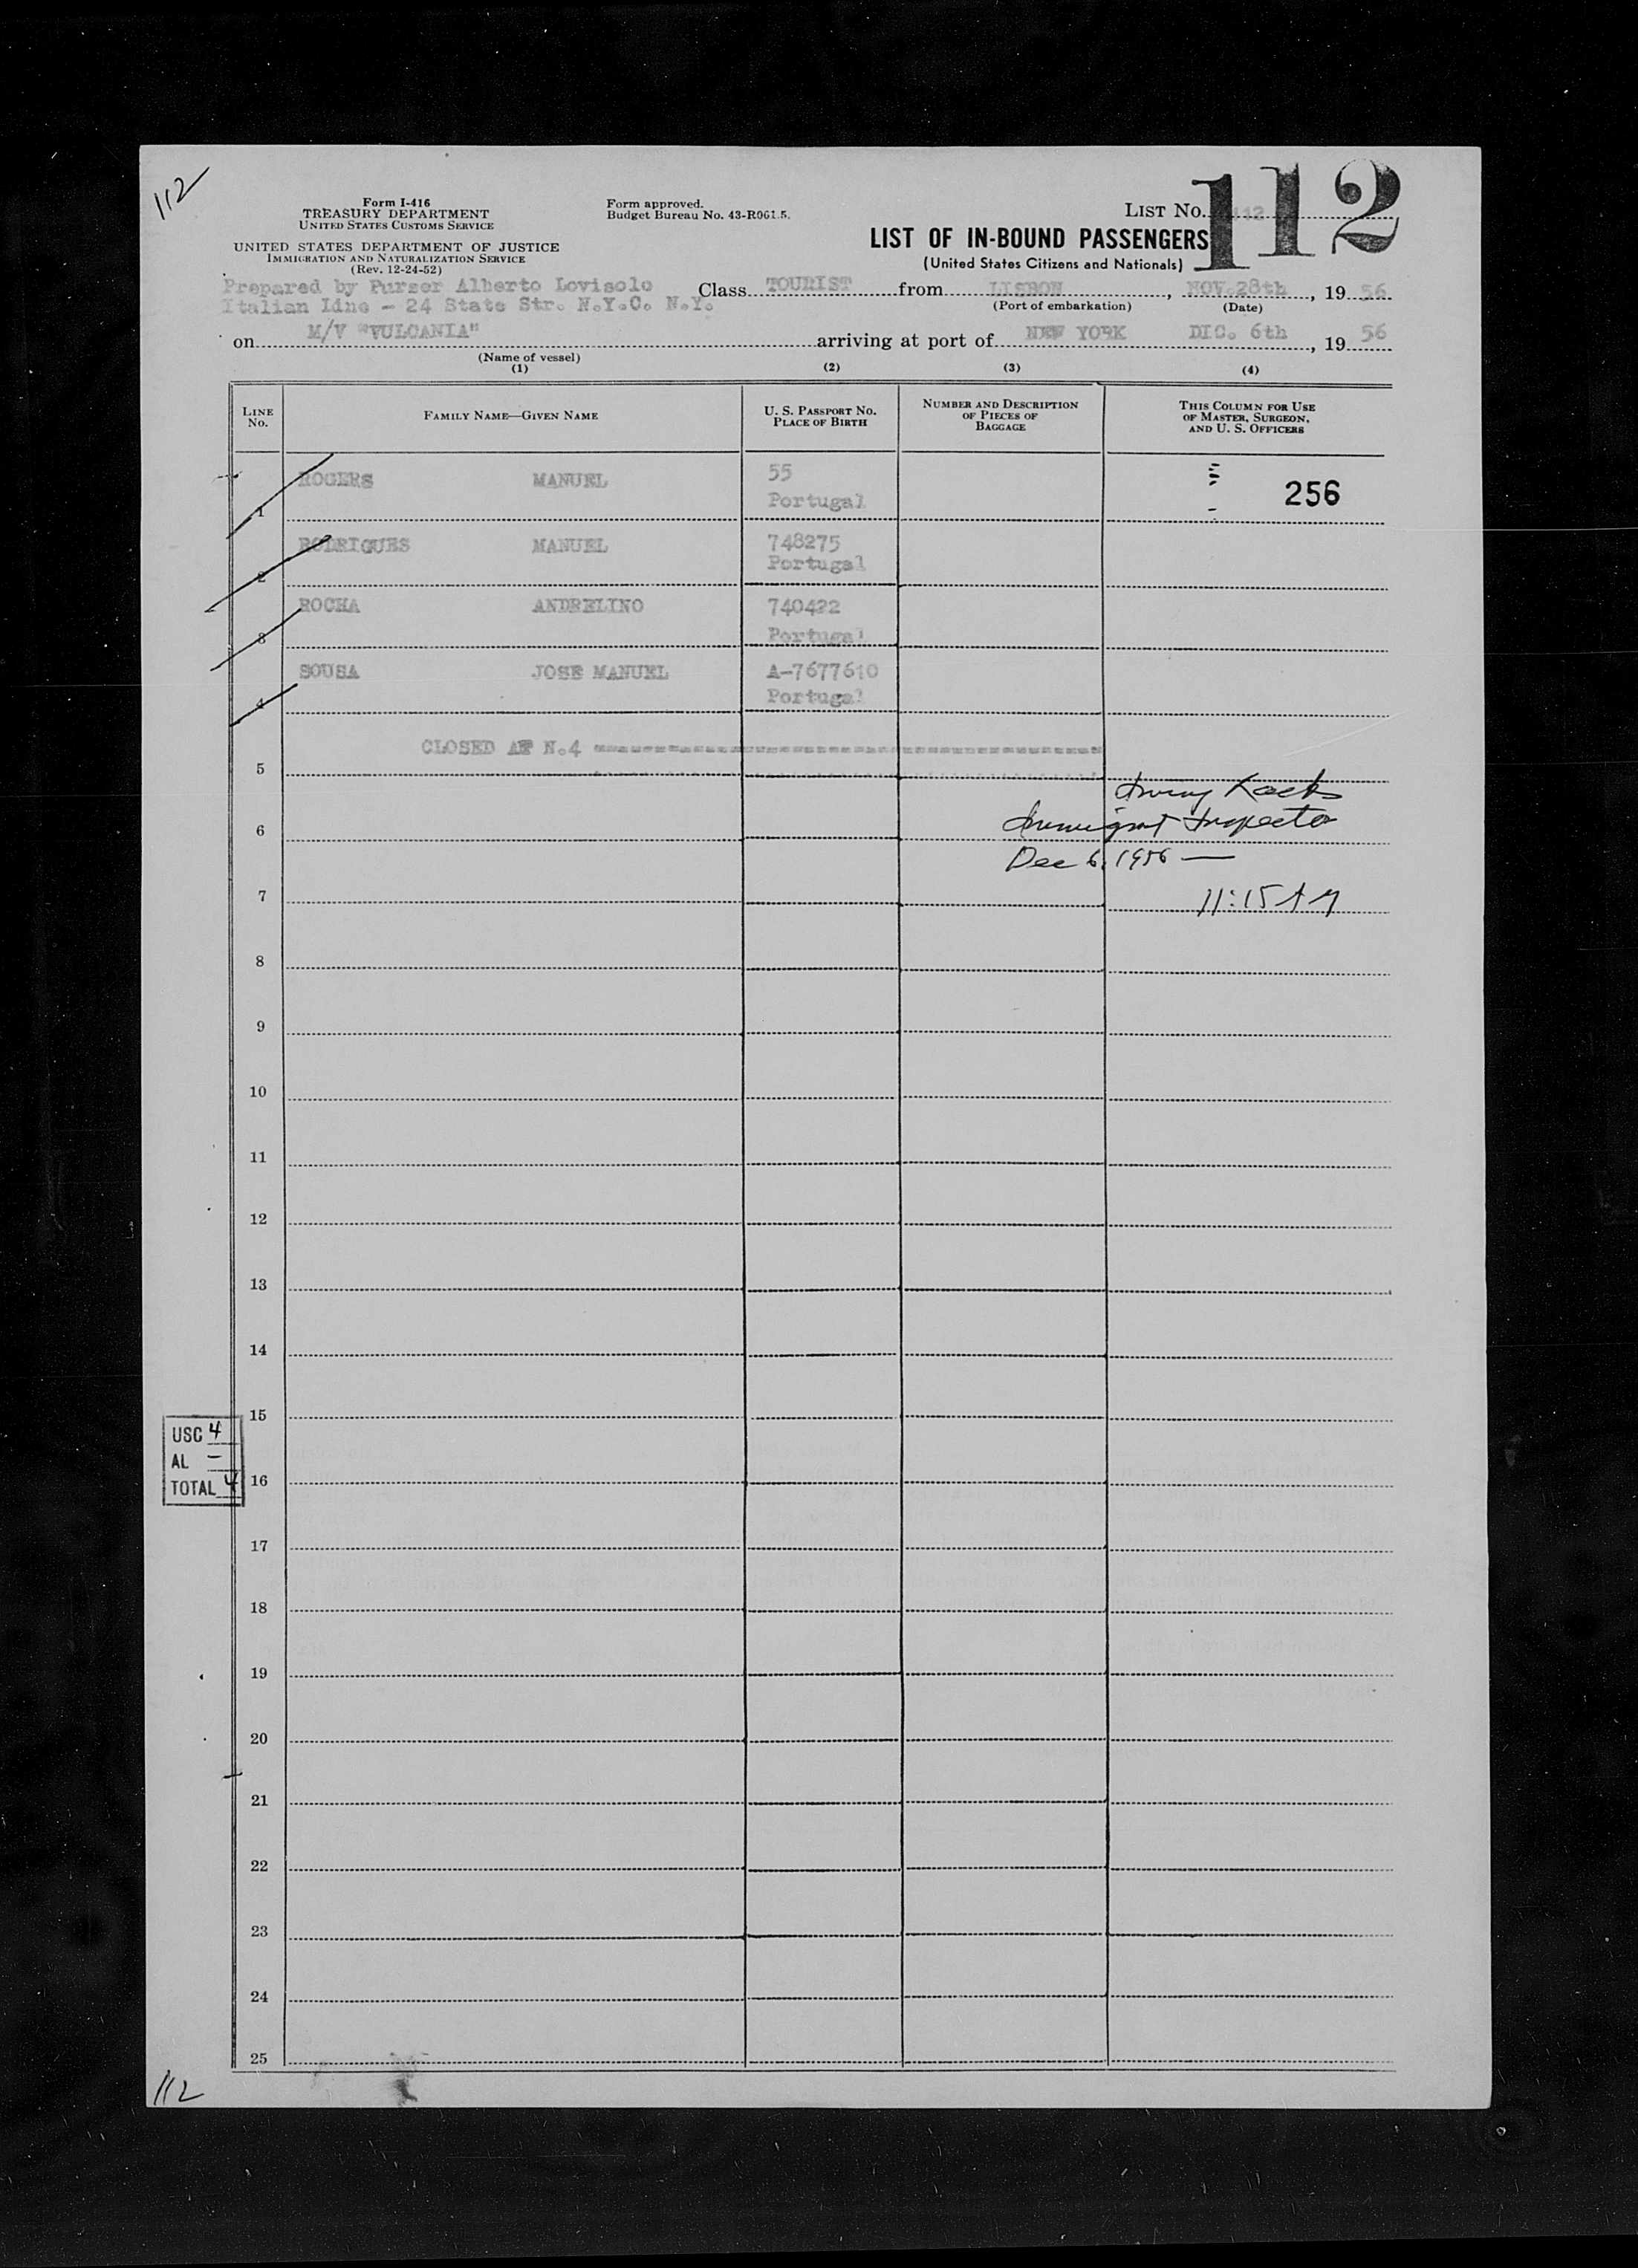 112
Form I-416
TREASURY DEPARTMENT
UNITED STATES CUSTOMS SERVICE
UNITED STATES DEPARTMENT OF JUSTICE
IMMIGRATION AND NATURALIZATION SERVICE
(Rev. 12-24-52)
Form approved.
Budget Bureau No. 43-R061.5.
LIST NO. 112
112
LIST OF IN-BOUND PASSENGERS
(United States Citizens and Nationals)
Prepared by Purser Alberto Lovisolo
Italian Line - 24 State Str. N.Y.C. N.Y.
Class TOURIST from LISBON, NOV.28th, 19 56
(Port of embarkation) (Date)
on M/V "VULCANIA" arriving at port of NEW YORK DIC. 6th, 19 56
(Name of vessel)
(1) (2) (3) (4)
LINE No. FAMILY NAME—GIVEN NAME U. S. PASSPORT NO. PLACE OF BIRTH NUMBER AND DESCRIPTION OF PIECES OF BAGGAGE THIS COLUMN FOR USE OF MASTER, SURGEON, AND U. S. OFFICERS
ROGERS MANUEL 55
1 Portugal 256
RODRIGUES MANUEL 748275
2 Portugal
ROCHA ANDRELINO 740422
3 Portugal
SOUSA JOSE MANUEL A-7677610
4 Portugal
CLOSED AT N.4
5
Irving
6 Immigrant Inspector
Dec 6, 1956 —
7 11:15 AM
8
9
10
11
12
13
14
15
USC 4
AL —
TOTAL 4
16
17
18
19
20
21
22
23
24
25
112